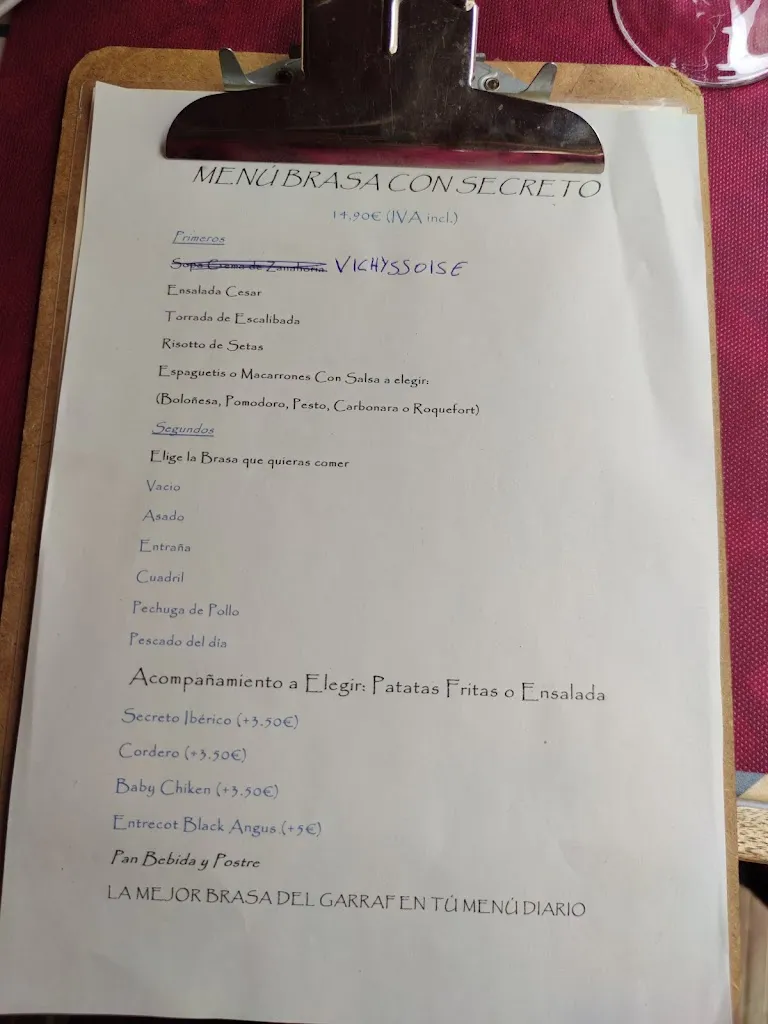 MENÚ BRASA CON SECRETO
14,90€ (IVA incl.)
Primeros
Sopa Crema de Zanahoria VICHYSSOISE
Ensalada Cesar
Torrada de Escalibada
Risotto de Setas
Espaguetis o Macarrones Con Salsa a elegir:
(Boloñesa, Pomodoro, Pesto, Carbonara o Roquefort)
Segundos
Elige la Brasa que quieras comer
Vacio
Asado
Entraña
Cuadril
Pechuga de Pollo
Pescado del día
Acompañamiento a Elegir: Patatas Fritas o Ensalada
Secreto Ibérico (+3.50€)
Cordero (+3.50€)
Baby Chiken (+3.50€)
Entrecot Black Angus (+5€)
Pan Bebida y Postre
LA MEJOR BRASA DEL GARRAF EN TÚ MENÚ DIARIO